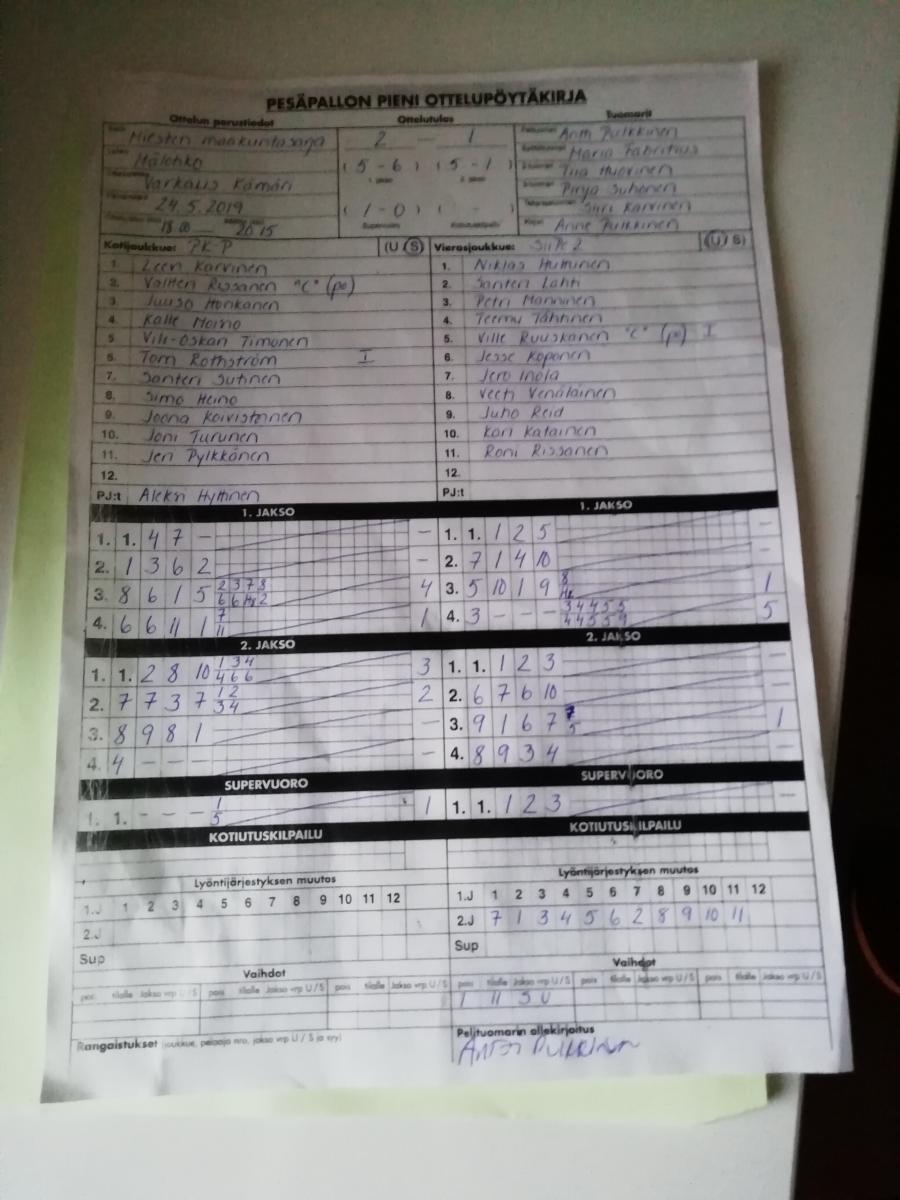 PESÄPALLON PIENI OTTELUPÖYTÄKIRJA
Ottelun perustiedot Ottelutulos Tuomarit
Miesten maakuntasarja 2 — 1 Antti Pulkkinen
Maria Fabritius
Varkaus Kämäri (5 - 6) (5 - 1) Tiia Huovinen
24.5.2019 Pirjo Suhonen
18.00 — 20.15 (1 - 0) ( - ) Siiri Karvinen
Supervuoro Kotiutuskilpailu Anne Pulkkinen
Kotijoukkue: PK-P (U S) Vierasjoukkue: SiiPe 2 (U S)
1. Leevi Karvinen 1. Niklas Huttunen
2. Valtteri Rissanen "C" (pe) 2. Santeri Lahti
3. Juuso Honkanen 3. Petri Manninen
4. Kalle Moino 4. Teemu Tähtinen
5. Vili-Oskari Timonen 5. Ville Ruuskanen "C" (pe) I
6. Tom Rothström I 6. Jesse Koponen
7. Santeri Sutinen 7. Jero Inola
8. Simo Heino 8. Veeti Venäläinen
9. Joona Koivistoinen 9. Juho Reid
10. Joni Turunen 10. Kari Katainen
11. Jeri Pylkkänen 11. Roni Rissanen
12. 12.
PJ:t Aleksi Hyttinen PJ:t
1. JAKSO 1. JAKSO
1. 1. 4 7 – – 1. 1. 1 2 5 –
2. 1 3 6 2 – 2. 7 1 4 10 –
3. 8 6 1 5 4 3. 5 10 1 9 1
4. 6 6 11 1 7 11 1 4. 3 – – – 3 4 4 5 5 4 4 5 5 9 5
2. JAKSO 2. JAKSO
1. 1. 2 8 10 1 3 4 4 6 6 3 1. 1. 1 2 3 –
2. 7 7 3 7 1 2 3 4 2 2. 6 7 6 10 –
3. 8 9 8 1 – 3. 9 1 6 7 7 5 1
4. 4 – – – – 4. 8 9 3 4 –
SUPERVUORO SUPERVUORO
1. 1. – – – 1 5 1 1. 1. 1 2 3 –
KOTIUTUSKILPAILU KOTIUTUSKILPAILU
Lyöntijärjestyksen muutos Lyöntijärjestyksen muutos
1.J 1 2 3 4 5 6 7 8 9 10 11 12 1.J 1 2 3 4 5 6 7 8 9 10 11 12
2.J 2.J 7 1 3 4 5 6 2 8 9 10 11
Sup Sup
Vaihdot Vaihdot
pois tilalle Jakso vrp U / S pois tilalle Jakso vrp U / S pois tilalle Jakso vrp U / S pois tilalle Jakso vrp U / S pois tilalle Jakso vrp U / S pois tilalle Jakso vrp U / S
1 11 S U
Rangaistukset (joukkue, pelaaja nro, jakso vrp U / S ja syy) Pelituomarin allekirjoitus
Antti Pulkkinen